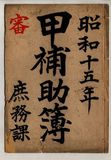 昭和十五年
甲補助簿
庶務課
審